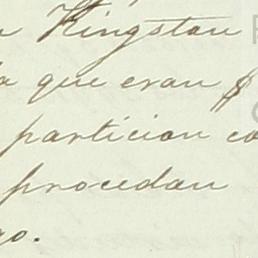 Kingston
que eran $
particion co
procedan
go.